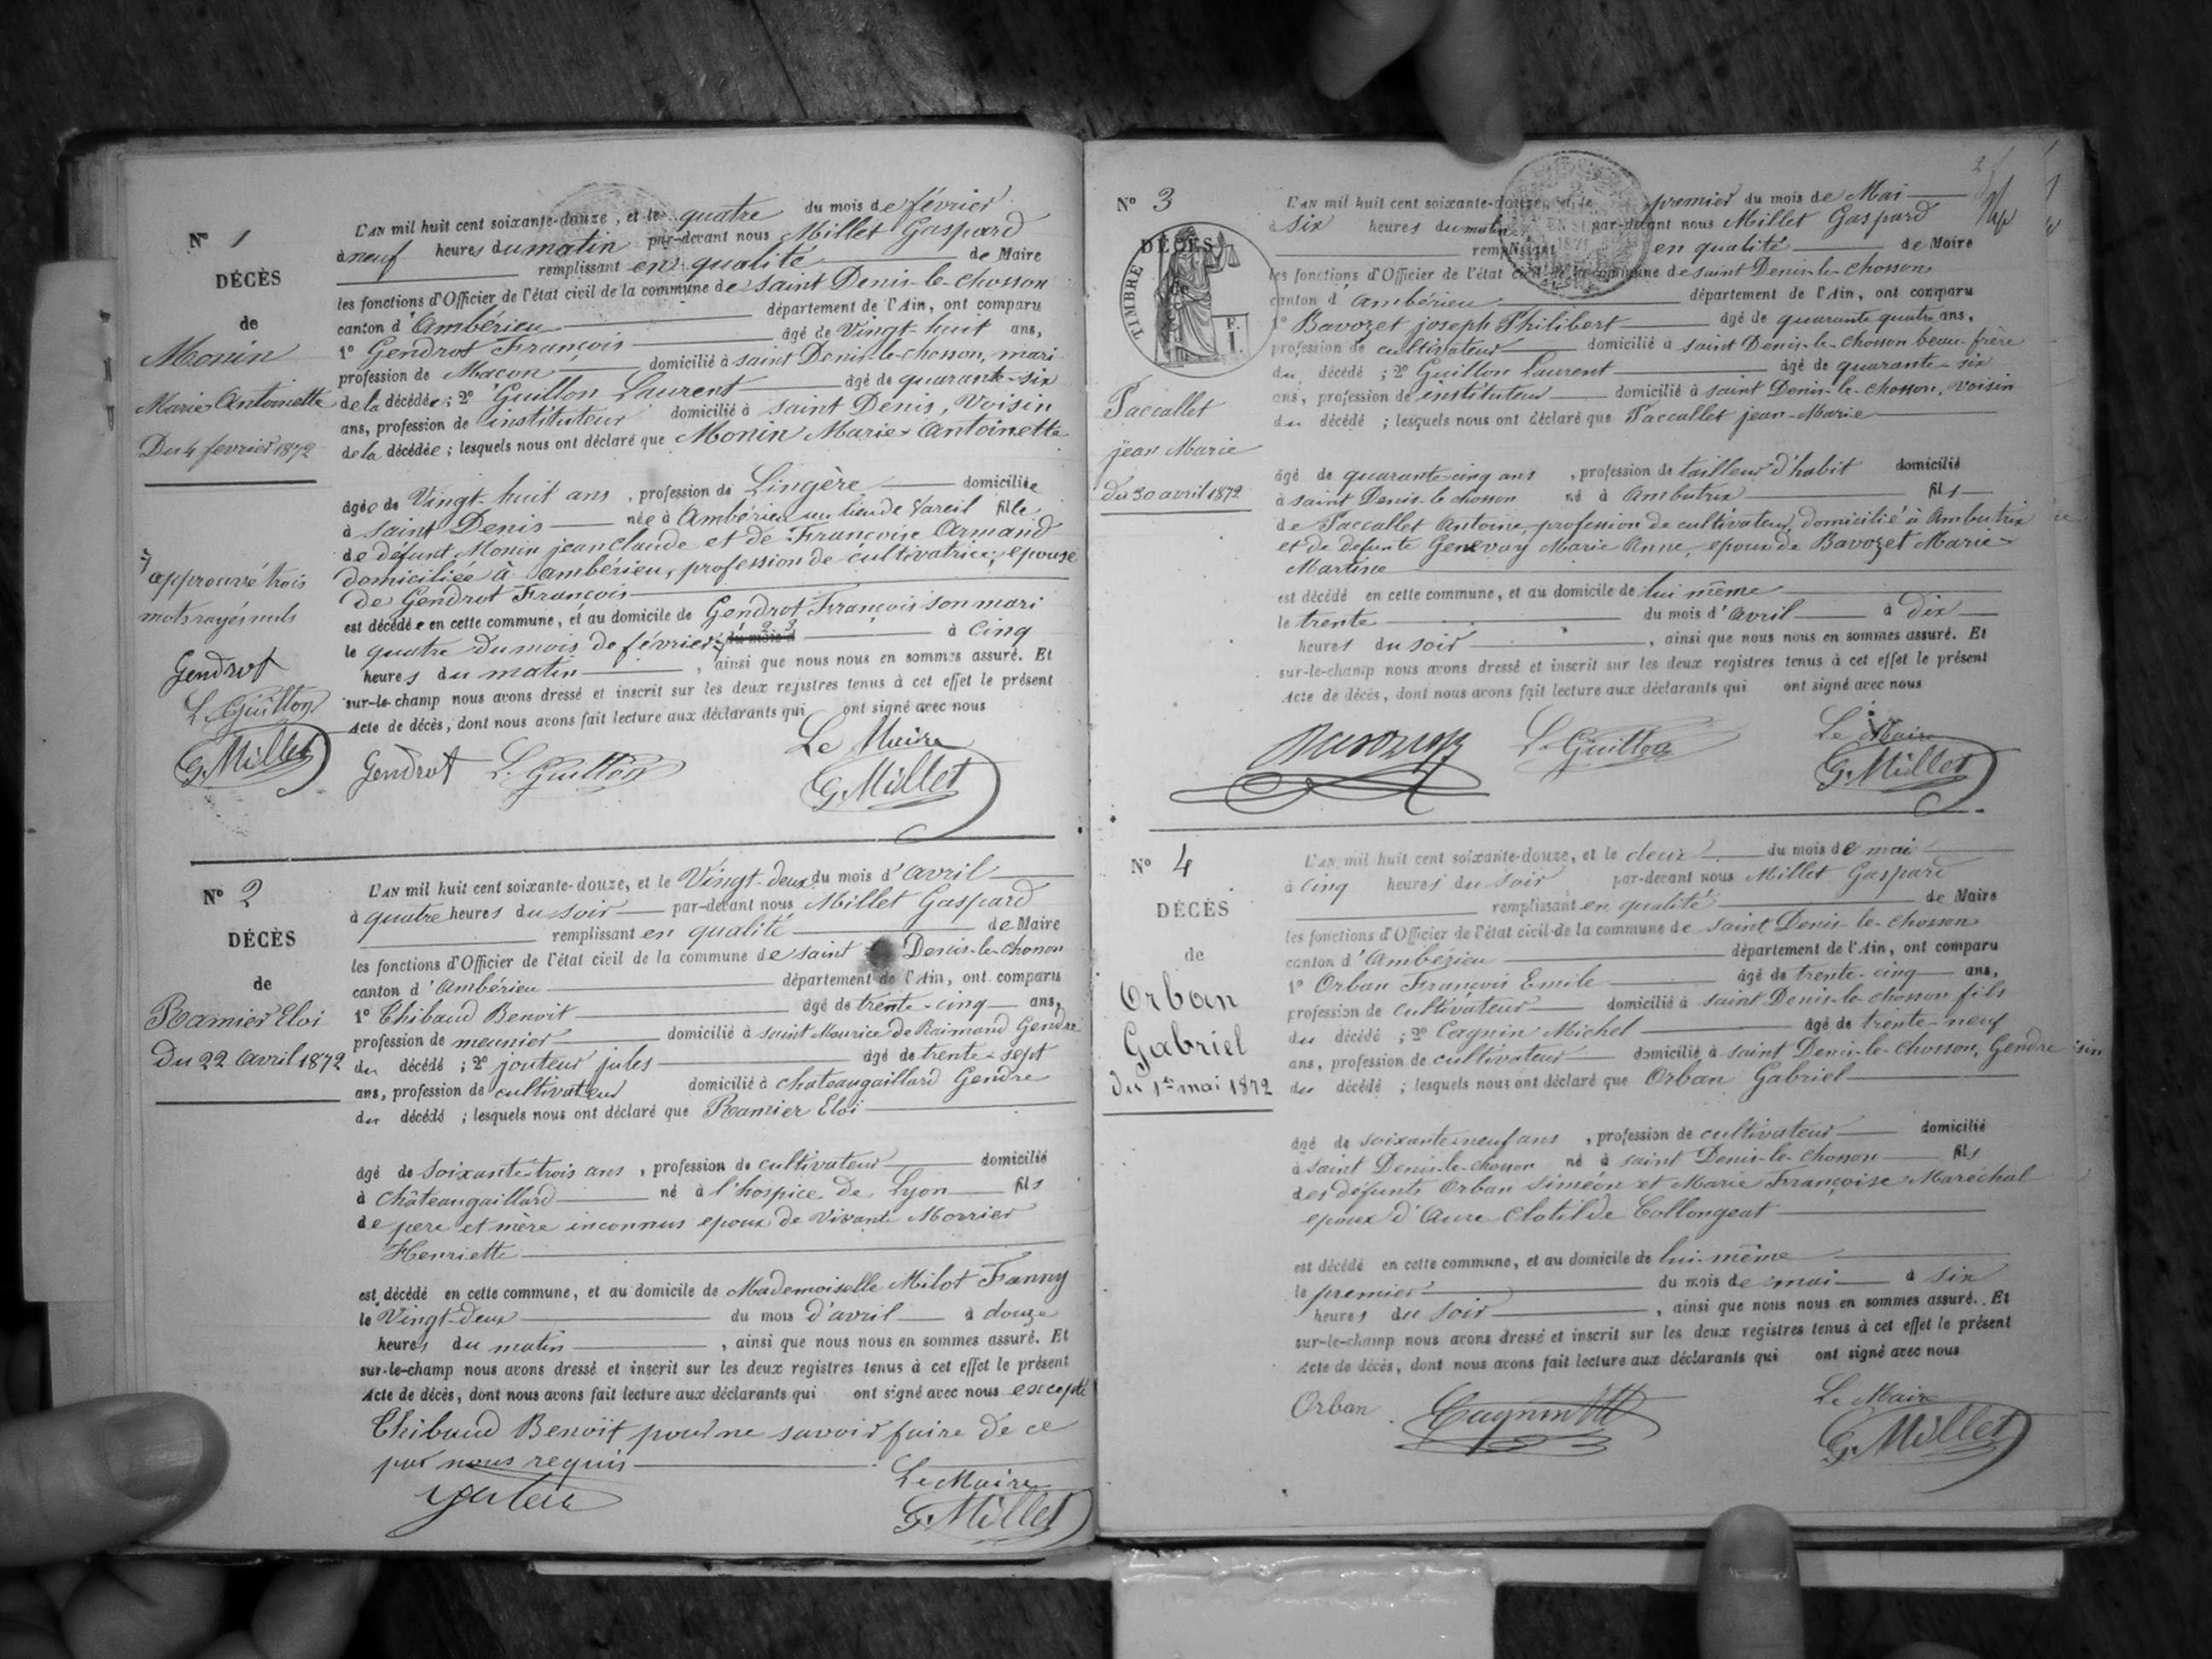 N° 1
DÉCÈS
de
Monin
Marie Antoinette
Du 4 fevrier 1872
L'AN mil huit cent soixante-douze, et le quatre du mois de février
à neuf heures du matin par-devant nous Millet Gaspard
remplissant en qualité de Maire
les fonctions d'Officier de l'état civil de la commune de saint Denis-le-chosson
canton d'Ambérieu département de l'Ain, ont comparu
1° Gendrot François âgé de Vingt-huit ans,
profession de Maçon domicilié à saint Denis-le-chosson, mari
de la décédée ; 2° Guillon Laurent âgé de quarante-six
ans, profession de instituteur domicilié à saint Denis, Voisin
de la décédée ; lesquels nous ont déclaré que Monin Marie Antoinette
âgée de Vingt-huit ans, profession de Lingère domiciliée
à saint Denis née à Ambérieu au lieu de Vareil fille
de défunt Monin jean Claude et de Françoise Armand
domiciliée à ambérieu, profession de cultivatrice, epouse
de Gendrot François
est décédée en cette commune, et au domicile de Gendrot François son mari
le quatre du mois de février du mois d à Cinq
heures du matin, ainsi que nous nous en sommes assuré. Et
sur-le-champ nous avons dressé et inscrit sur les deux registres tenus à cet effet le présent
Acte de décès, dont nous avons fait lecture aux déclarants qui ont signé avec nous
approuvé trois
mots rayés nuls
Gendrot
L. Guillon
G. Millet
Le Maire
Gendrot L. Guillon G. Millet
N° 2
DÉCÈS
de
Ramier Eloi
Du 22 Avril 1872
L'AN mil huit cent soixante-douze, et le Vingt-deux du mois d'avril
à quatre heures du soir par-devant nous Millet Gaspard
remplissant en qualité de Maire
les fonctions d'Officier de l'état civil de la commune de saint Denis-le-chosson
canton d'Ambérieu département de l'Ain, ont comparu
1° Thibaud Benoit âgé de trente-cinq ans,
profession de meunier domicilié à saint Maurice de Raimand Gendre
du décédé ; 2° jouteur jules âgé de trente-sept
ans, profession de cultivateur domicilié à chateaugaillard Gendre
du décédé ; lesquels nous ont déclaré que Ramier Eloi
âgé de soixante-trois ans, profession de cultivateur domicilié
à Châteaugaillard né à l'hospice de Lyon fils
de pere et mère inconnus epoux de Vivante Morrier
Henriette
est décédé en cette commune, et au domicile de Mademoiselle Milot Fanny
le Vingt-deux du mois d'avril à douze
heures du matin, ainsi que nous nous en sommes assuré. Et
sur-le-champ nous avons dressé et inscrit sur les deux registres tenus à cet effet le présent
Acte de décès, dont nous avons fait lecture aux déclarants qui ont signé avec nous excepté
Thibaud Benoït pour ne savoir faire de ce
par nous requis
Le Maire
G. Millet
N° 3
DÉCÈS
TIMBRE
de
Paccallet
jean Marie
du 30 avril 1872
L'AN mil huit cent soixante-douze, et le premier du mois de Mai
à six heures du matin par-devant nous Millet Gaspard
remplissant en qualité de Maire
les fonctions d'Officier de l'état civil de la commune de saint Denis-le-chosson
canton d'ambérieu département de l'Ain, ont comparu
1° Bavozet joseph Philibert âgé de quarante quatre ans,
profession de cultivateur domicilié à saint Denis-le-chosson beau-frère
du décédé ; 2° Guillon Laurent âgé de quarante-six
ans, profession de instituteur domicilié à saint Denis-le-chosson, Voisin
du décédé ; lesquels nous ont déclaré que Paccallet jean-Marie
âgé de quarante-cinq ans, profession de tailleur d'habit domicilié
à saint Denis-le chosson né à Ambutrix fils
de Paccallet Antoine, profession de cultivateur, domicilié à Ambutrix
et de défunte Genevay Marie Anne, epoux de Bavozet Marie
Martine
est décédé en cette commune, et au domicile de lui même
le trente du mois d'avril à dix
heures du soir, ainsi que nous nous en sommes assuré. Et
sur-le-champ nous avons dressé et inscrit sur les deux registres tenus à cet effet le présent
Acte de décès, dont nous avons fait lecture aux déclarants qui ont signé avec nous
L. Guillon
Le Maire
G. Millet
N° 4
DÉCÈS
de
Orban
Gabriel
du 1er mai 1872
L'AN mil huit cent soixante-douze, et le deux du mois de mai
à cinq heures du soir par-devant nous Millet Gaspard
remplissant en qualité de Maire
les fonctions d'Officier de l'état civil de la commune de saint Denis-le-chosson
canton d'Ambérieu département de l'Ain, ont comparu
1° Orban François Emile âgé de trente-cinq ans,
profession de cultivateur domicilié à saint Denis-le-chosson fils
du décédé ; 2° Cagnin Michel âgé de trente-neuf
ans, profession de cultivateur domicilié à saint Denis-le-chosson, Gendre
du décédé ; lesquels nous ont déclaré que Orban Gabriel
âgé de soixante-neuf ans, profession de cultivateur domicilié
à saint Denis-le-chosson né à saint Denis-le-chosson fils
des défunts Orban siméon et Marie Françoise Maréchal
epoux d'Aure Clotilde Collongeat
est décédé en cette commune, et au domicile de lui-même
le premier du mois de mai à six
heures du soir, ainsi que nous nous en sommes assuré. Et
sur-le-champ nous avons dressé et inscrit sur les deux registres tenus à cet effet le présent
Acte de décès, dont nous avons fait lecture aux déclarants qui ont signé avec nous
Le Maire
Orban Cagnin G. Millet